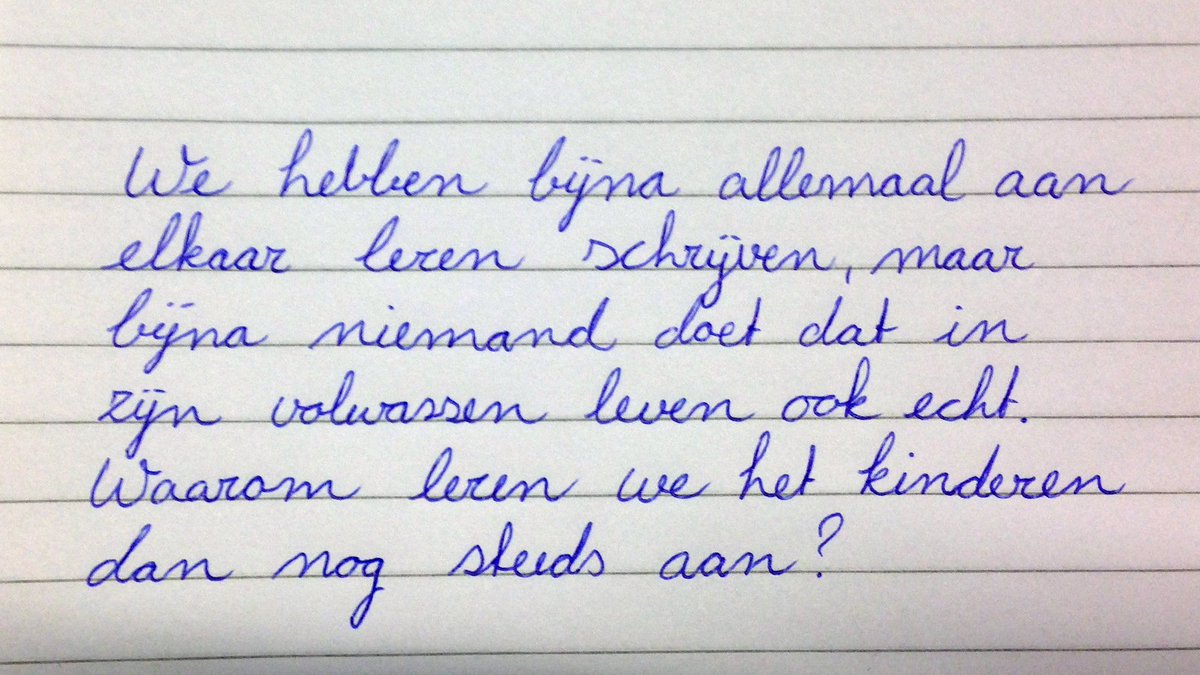 We hebben bijna allemaal aan
elkaar leren schrijven, maar
bijna niemand doet dat in
zijn volwassen leven ook echt.
Waarom leren we het kinderen
dan nog steeds aan?